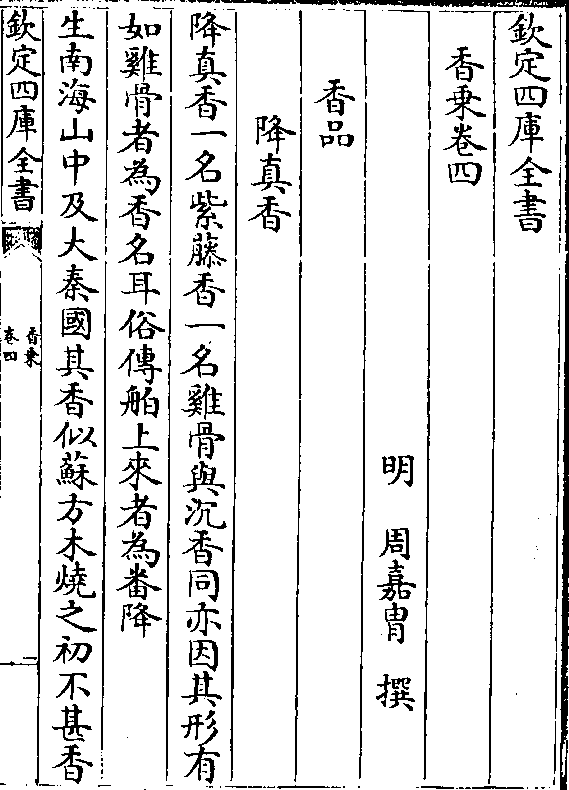 欽定四庫全書
香乗卷四
明 周嘉胄 撰
香品
降真香
降真香一名紫藤香一名雞骨與沉香同亦因其形有
如雞骨者為香名耳俗傳舶上來者為番降
生南海山中及大秦國其香似蘇方木燒之初不甚香
欽定四庫全書
香乗
卷四
一